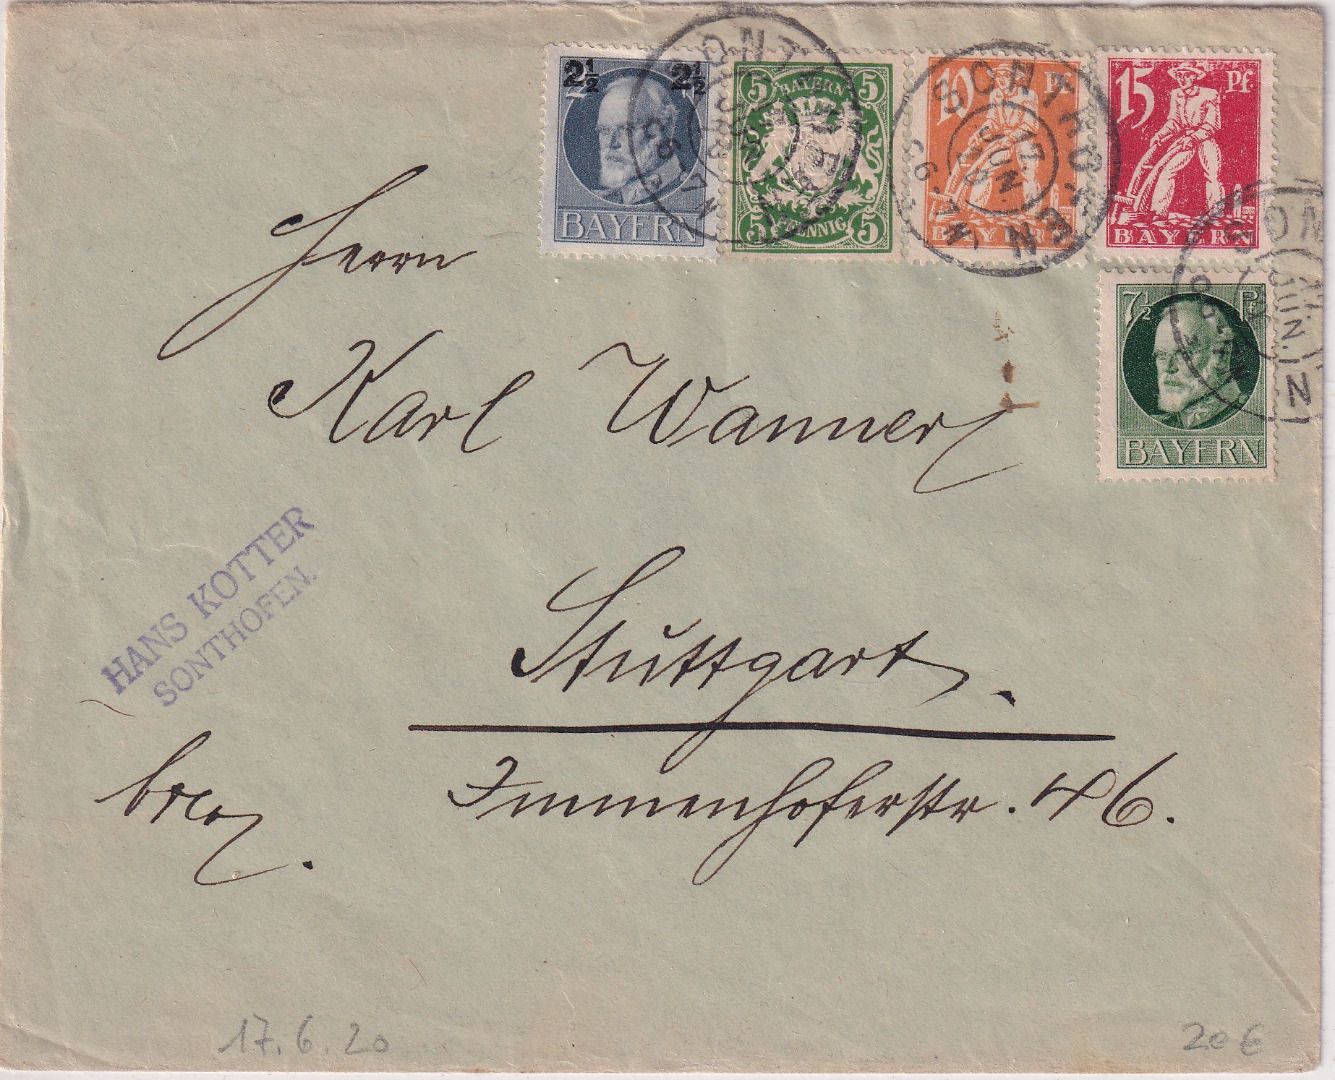 2½ 2½
2
BAYERN
5 BAYERN 5
5 PFENNIG 5
10 Pf
BAYERN
15 Pf.
BAYERN
7½ Pf.
BAYERN
SONTHOFEN
17.
JUN
20
6-7 N
Herrn
Karl Wanner
Stuttgart.
Immenhoferstr. 46.
HANS KOTTER
SONTHOFEN.
17.6.20
20€